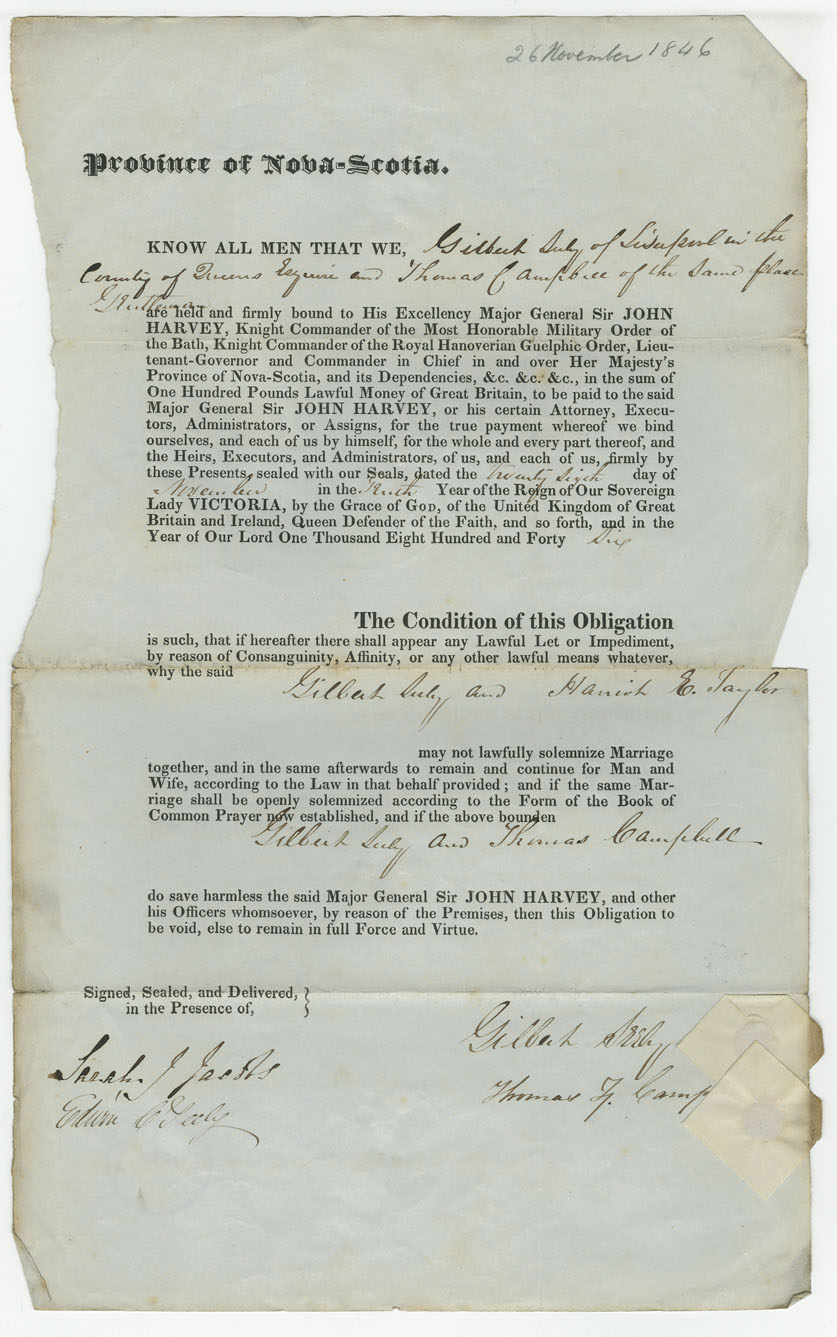 26 November 1846
Province of Nova-Scotia.
KNOW ALL MEN THAT WE, Gilbert of Liverpool in the
County of Queens Esquire and Thomas Campbell of the same place
Gentleman
are held and firmly bound to His Excellency Major General Sir JOHN
HARVEY, Knight Commander of the Most Honorable Military Order of
the Bath, Knight Commander of the Royal Hanoverian Guelphic Order, Lieu-
tenant-Governor and Commander in Chief in and over Her Majesty's
Province of Nova-Scotia, and its Dependencies, &c. &c. &c., in the sum of
One Hundred Pounds Lawful Money of Great Britain, to be paid to the said
Major General Sir JOHN HARVEY, or his certain Attorney, Execu-
tors, Administrators, or Assigns, for the true payment whereof we bind
ourselves, and each of us by himself, for the whole and every part thereof, and
the Heirs, Executors, and Administrators, of us, and each of us, firmly by
these Presents, sealed with our Seals, dated the twenty sixth day of
November in the Year of the Reign of Our Sovereign
Lady VICTORIA, by the Grace of GOD, of the United Kingdom of Great
Britain and Ireland, Queen Defender of the Faith, and so forth, and in the
Year of Our Lord One Thousand Eight Hundred and Forty Six
The Condition of this Obligation
is such, that if hereafter there shall appear any Lawful Let or Impediment,
by reason of Consanguinity, Affinity, or any other lawful means whatever,
why the said
Gilbert and E. Taylor
may not lawfully solemnize Marriage
together, and in the same afterwards to remain and continue for Man and
Wife, according to the Law in that behalf provided; and if the same Mar-
riage shall be openly solemnized according to the Form of the Book of
Common Prayer now established, and if the above bounden
Gilbert and Thomas Campbell
do save harmless the said Major General Sir JOHN HARVEY, and other
his Officers whomsoever, by reason of the Premises, then this Obligation to
be void, else to remain in full Force and Virtue.
Signed, Sealed, and Delivered, }
in the Presence of,
Gilbert
Sarah J Jacobs
Thomas Camp
Edwin